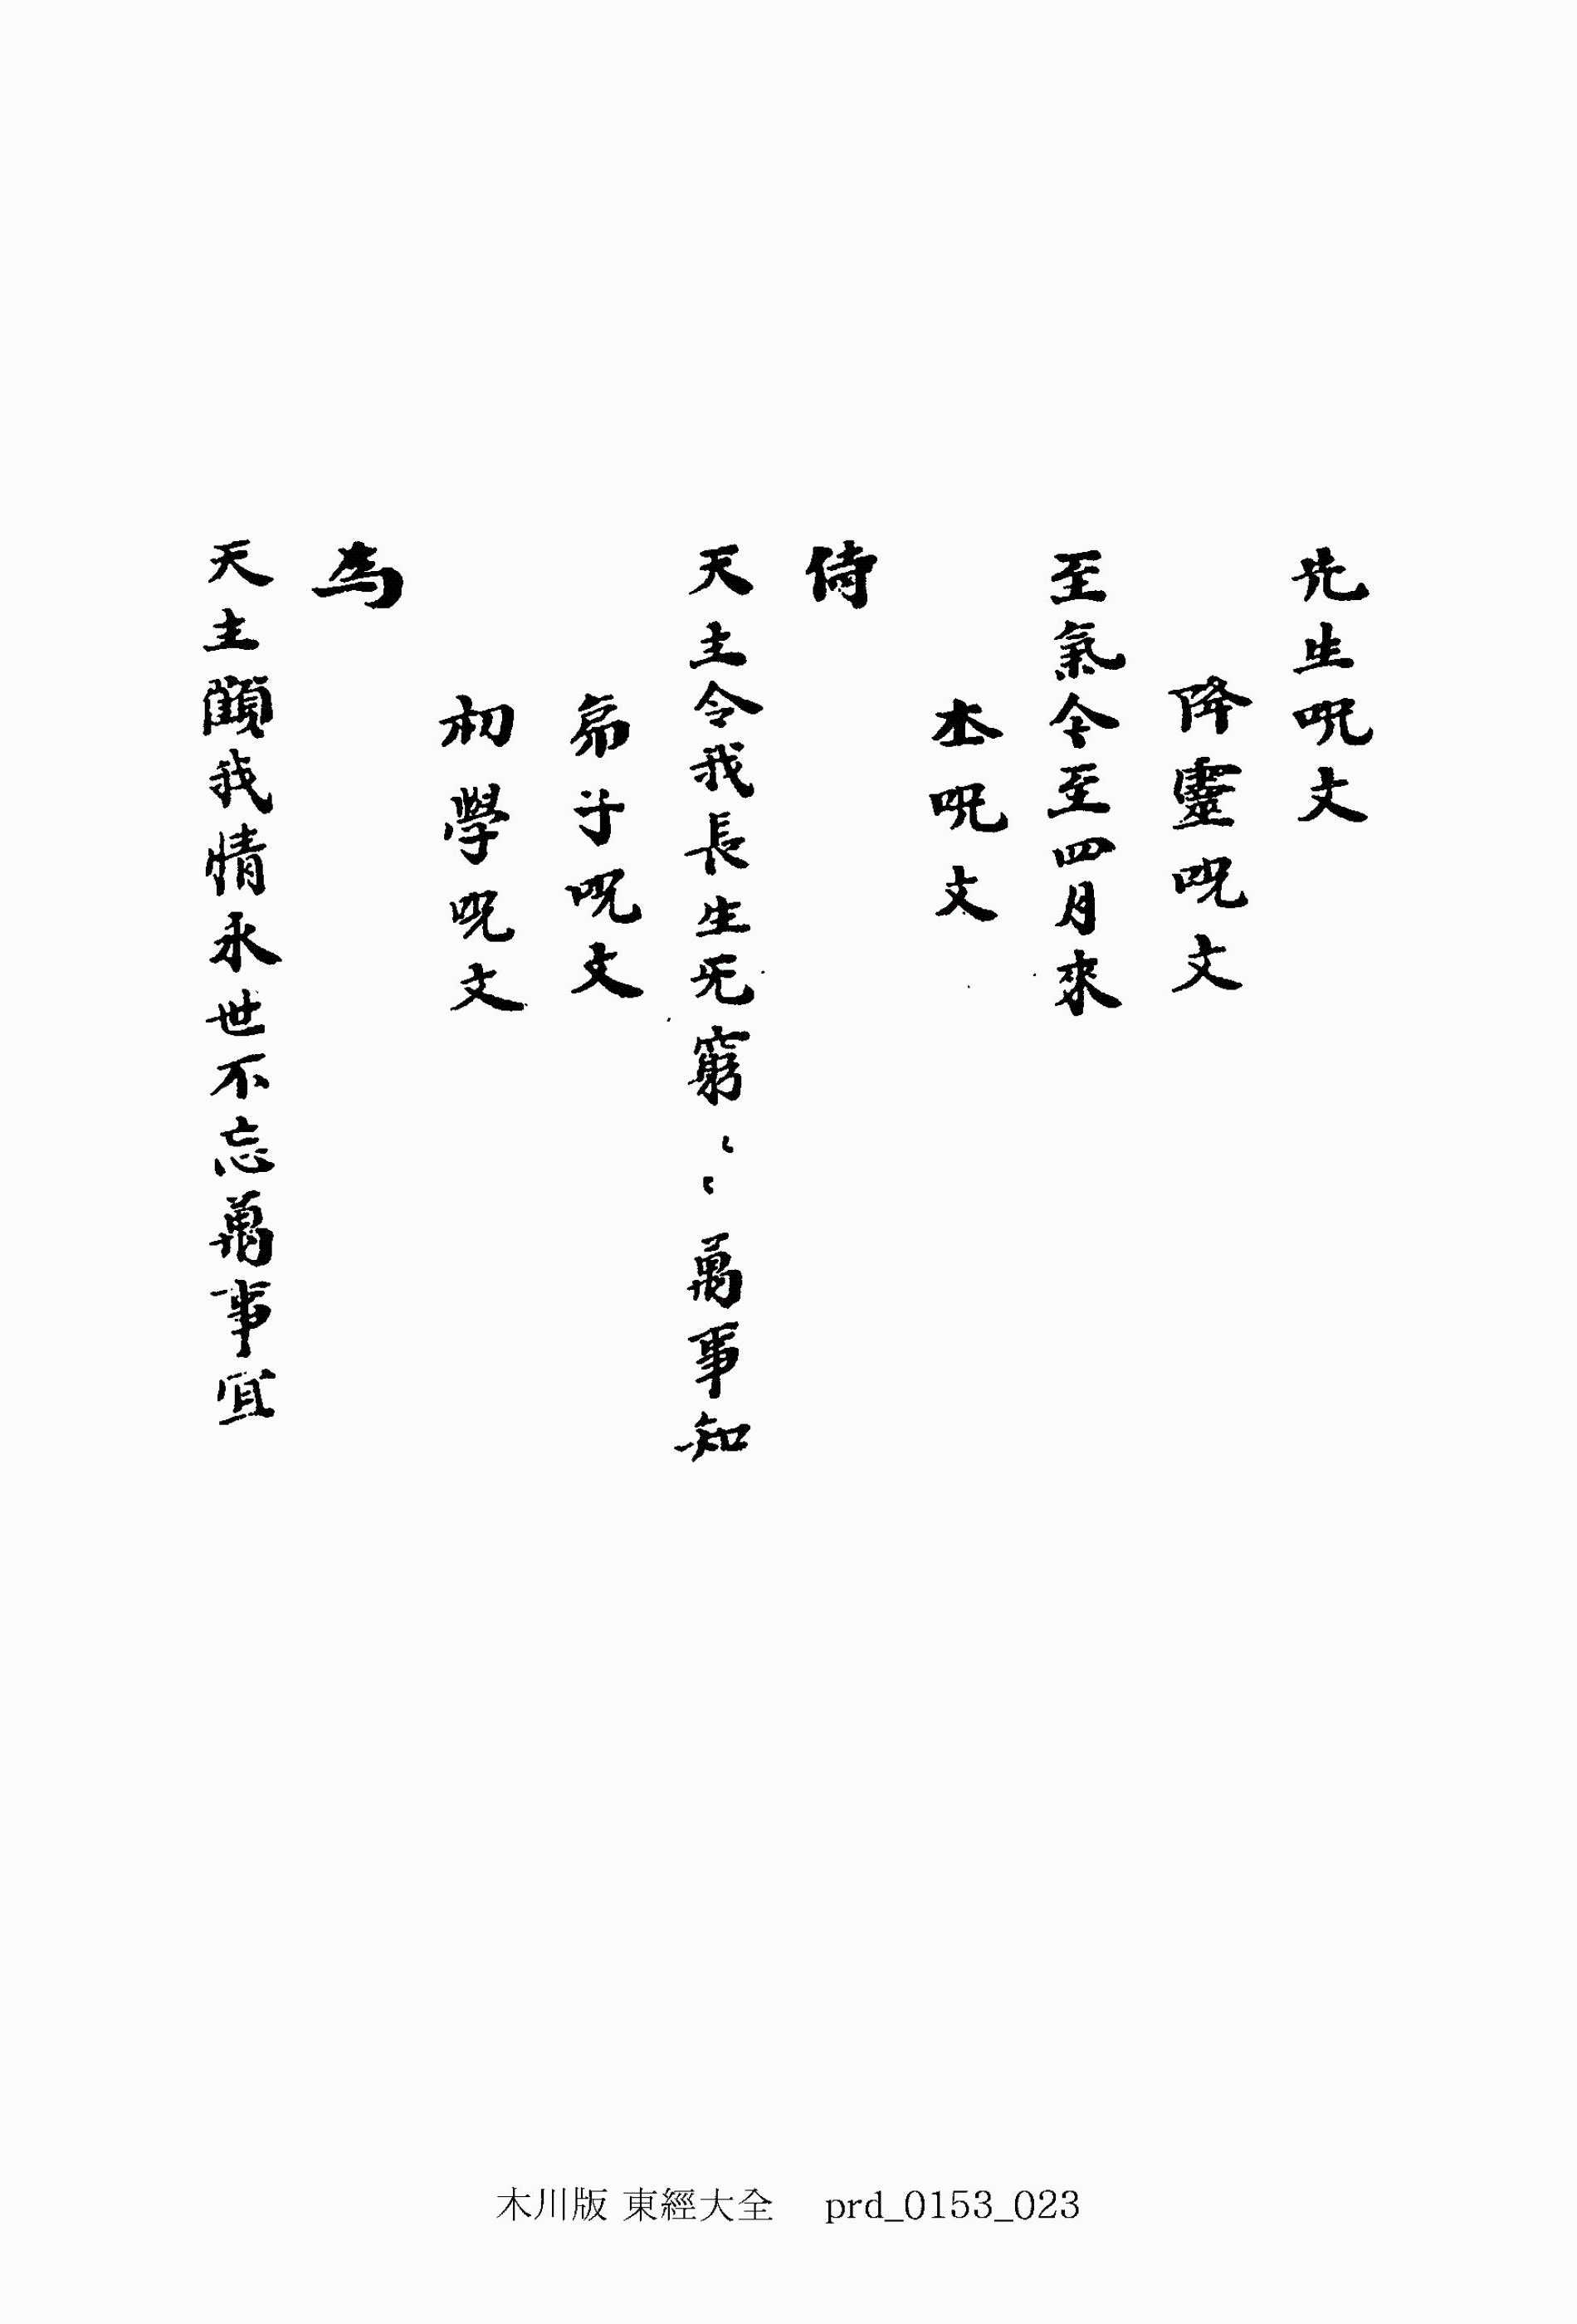 先生呪文
降靈呪文
至氣今至四月來
本呪文
侍
天主令我長生无窮〻〻萬事知
弟子呪文
初學呪文
為
天主顧我情永世不忘萬事宜
木川版 東經大全 prd_0153_023